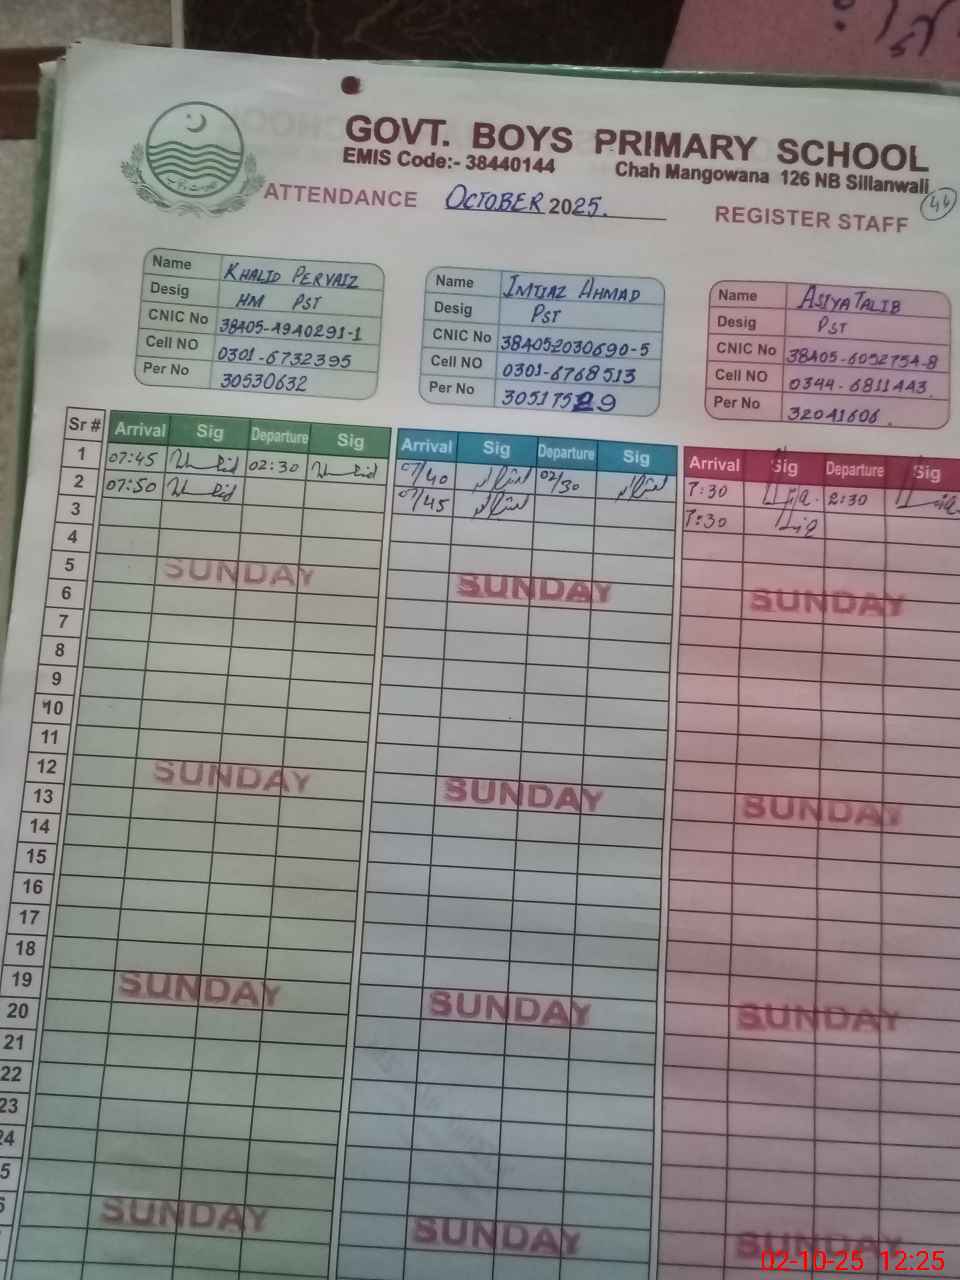 GOVT. BOYS PRIMARY SCHOOL
EMIS Code:- 38440144 Chah Mangowana 126 NB Sillanwali
ATTENDANCE OCTOBER 2025. REGISTER STAFF 44
Name KHALID PERVAIZ
Desig HM PST
CNIC No 38405-4940291-1
Cell NO 0301-6732395
Per No 30530632
Name IMTIAZ AHMAD
Desig PST
CNIC No 384052030690-5
Cell NO 0301-6768513
Per No 30517529
Name ASIYA TALIB
Desig PST
CNIC No 38405-6052754-8
Cell NO 0344-6811443.
Per No 32041606.
Sr # Arrival Sig Departure Sig Arrival Sig Departure Sig Arrival Sig Departure Sig
1 07:45 02:30 07/40 02/30 7:30 2:30
2 07:50 07/45 7:30
3
4
5 SUNDAY SUNDAY SUNDAY
6
7
8
9
10
11
12 SUNDAY SUNDAY SUNDAY
13
14
15
16
17
18
19 SUNDAY SUNDAY SUNDAY
20
21
22
23
24
5
SUNDAY SUNDAY SUNDAY
02-10-25 12:25